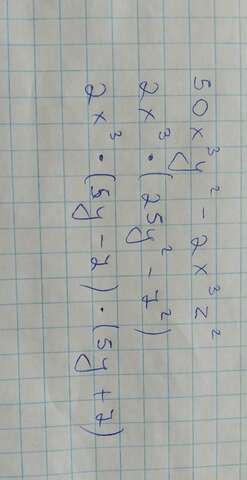 50x³y² - 2x³z²
2x³ · (25y² - z²)
2x³ · (5y - z) · (5y + z)